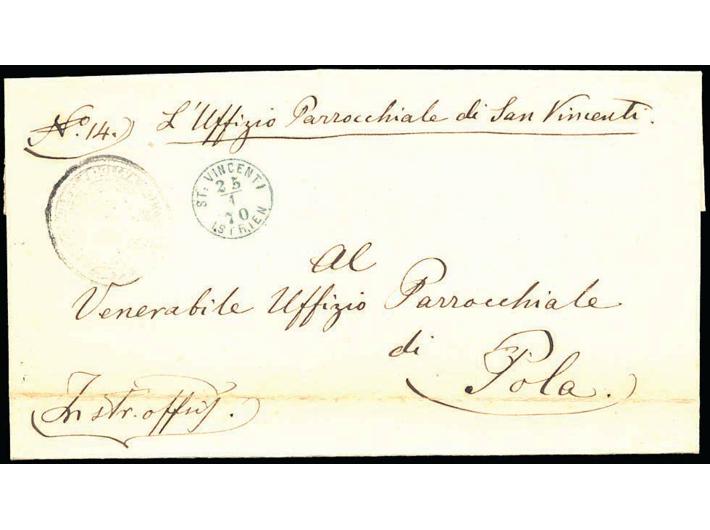 No. 14.
L'Uffizio Parrocchiale di San Vincenti.
ST: VINCENTI
25
1
70
ISTRIEN
Al
Venerabile Uffizio Parrocchiale
di
Pola.